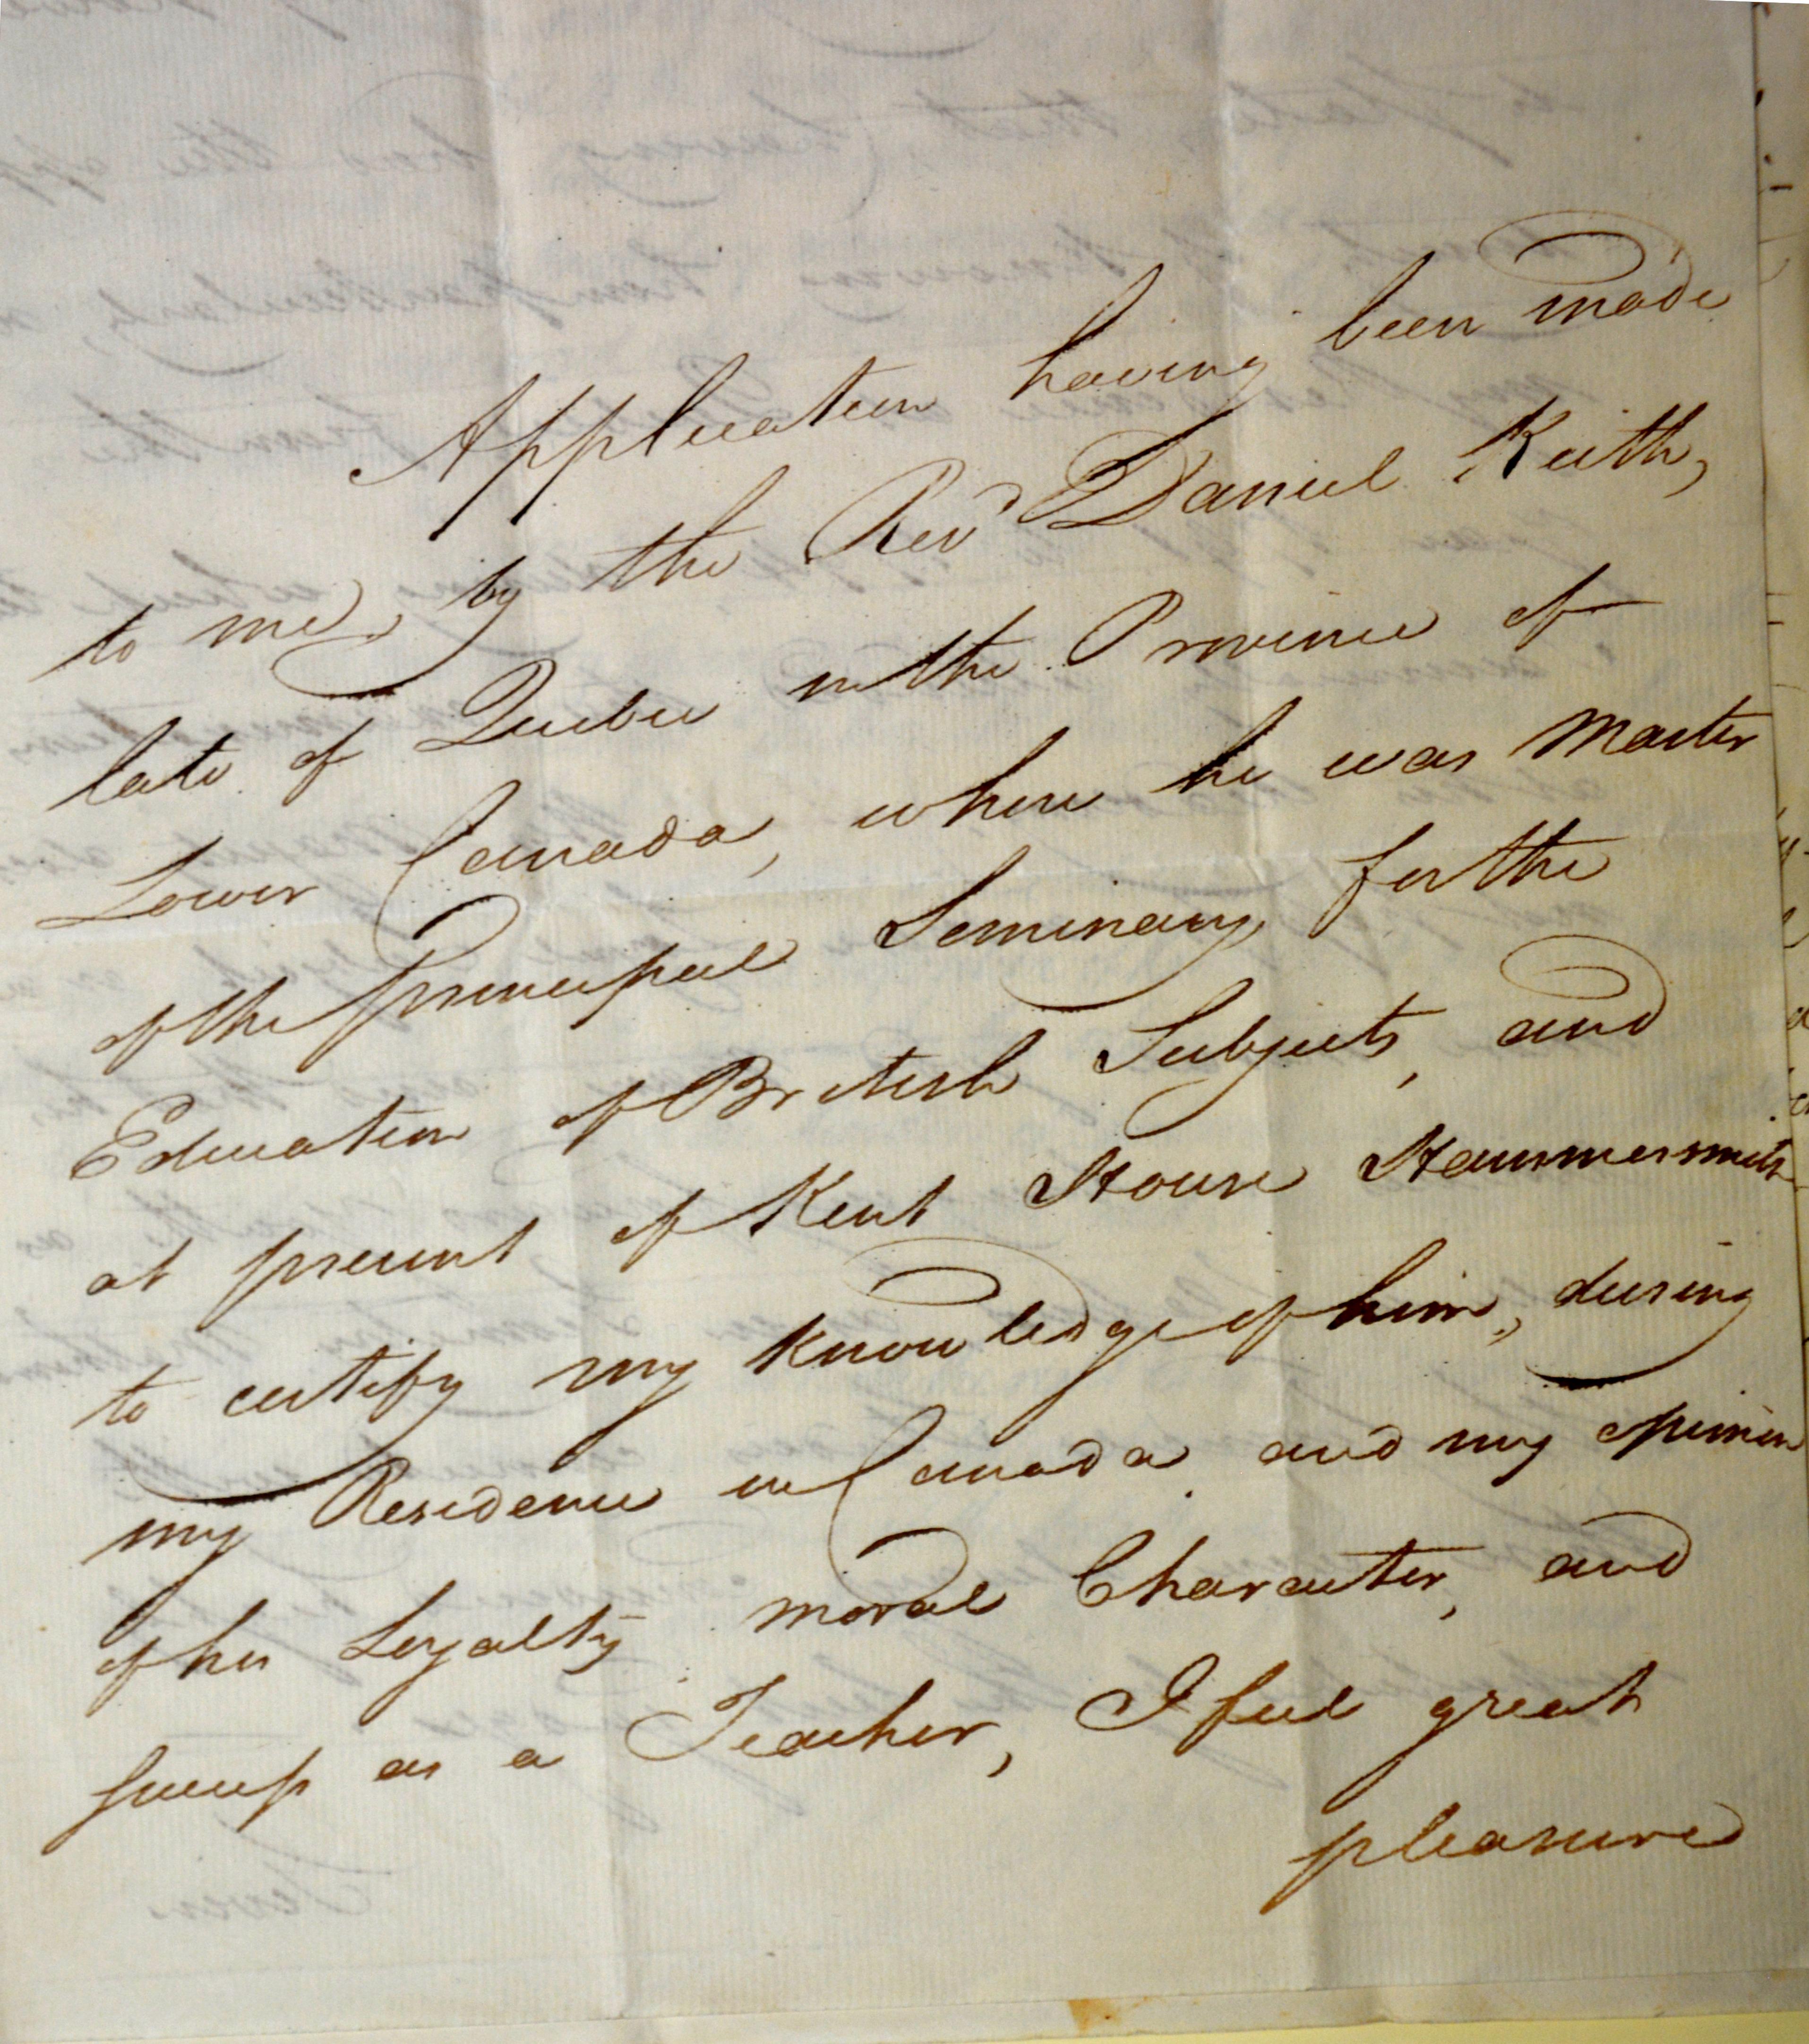 Application having been made
to me, by the Revd Daniel Keith,
late of Quebec in the Province of
Lower Canada, where he was Master
of the Principal Seminary for the
Education of British Subjects, and
at present of Kent House Hammersmith
to certify my knowledge of him, during
my Residence in Canada and my opinion
of his Loyalty moral Character, and
as a Teacher, I feel great
pleasure